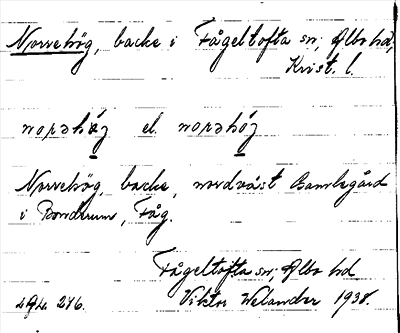 Norrehög, backe i Fågeltofta sn, Albo hd,
Krist. l.
norəhǿg el. norəhǿg
Norrehög, backe, nordväst
i Bonderum, Fåg.
Fågeltofta sn, Albo hd
Viktor Welander 1938.